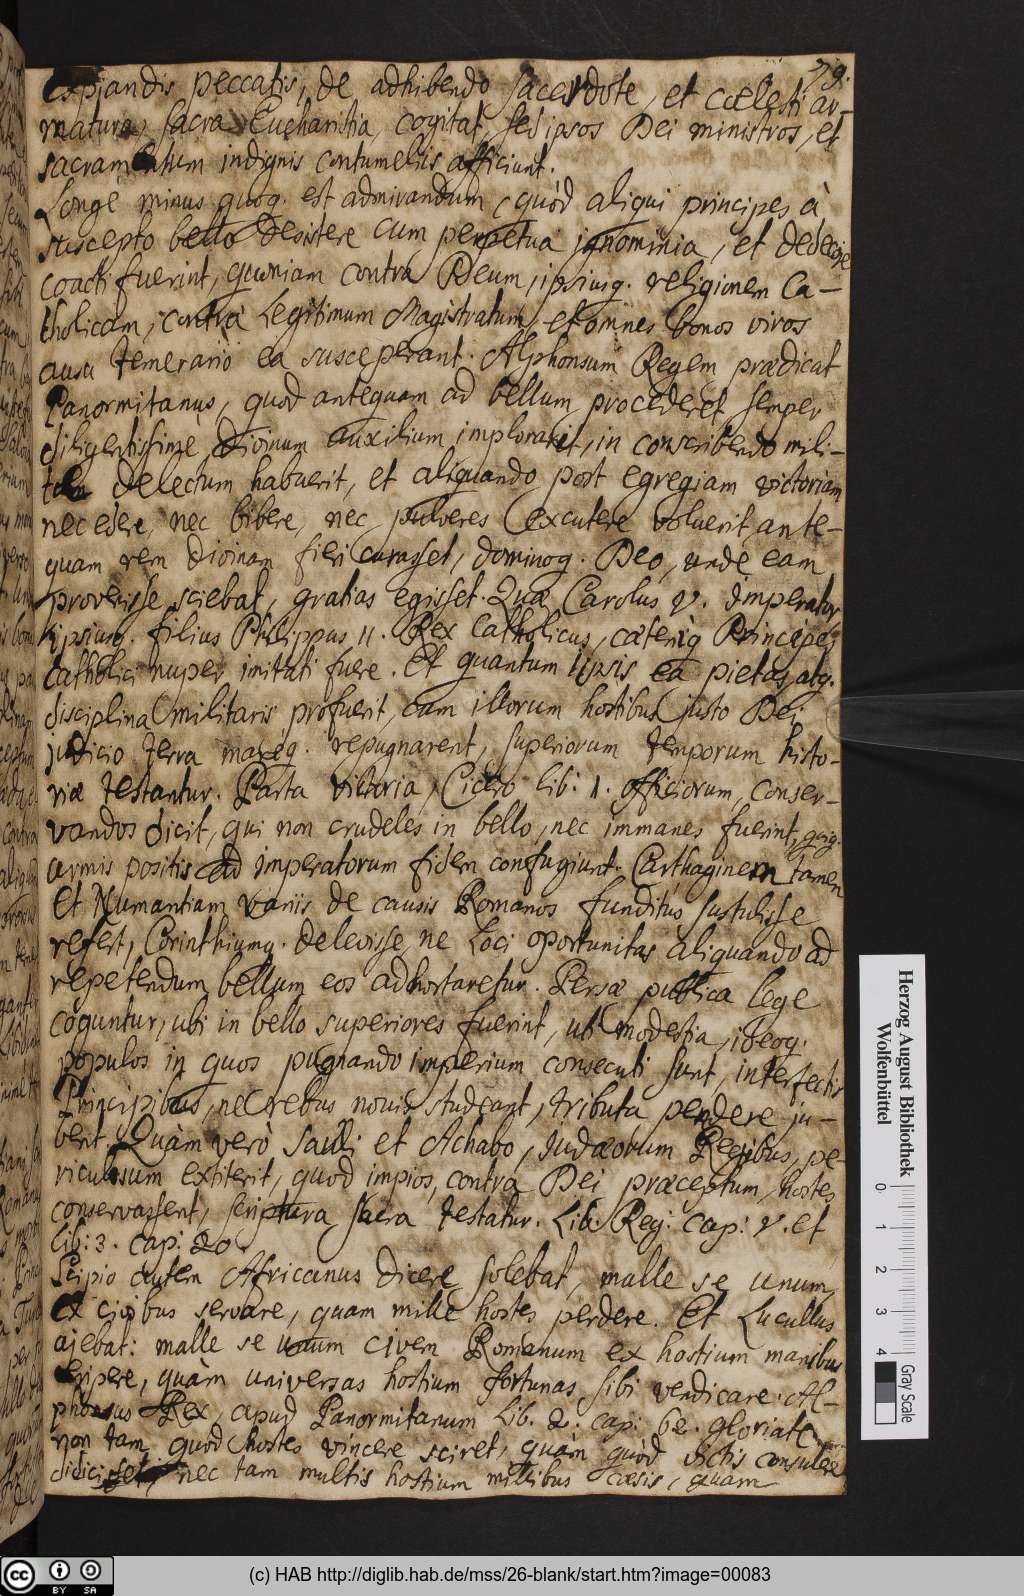 79.
expiandis peccatis, de adhibendo sacerdote, et cœlesti ar-
matura, sacra Eucharistia, cogitat, sed ipsos Dei ministros, et
sacramentum indignis contumeliis afficiunt.
Longè minus quoq. est admirandum, quòd aliqui principes à
suscepto bello desistere cum perpetua ignominia, et dedecore
coacti fuerint, quoniam contra Deum, ipsiusq. religionem Ca-
tholicam, contra Legitimum Magistratum, et omnes bonos viros
ausu temerario ea susceperant. Alphonsum Regem prædicat
Panormitanus, quod antequam ad bellum procederet semper
diligentissime Divinum auxilium implorarit, in conscribendo mili-
tem delectum habuerit, et aliquando post egregiam victoriam
nec edere, nec bibere, nec pulveres excutere voluerit, ante-
quam rem divinam fieri curasset, dominoq. Deo, unde eam
provenisse sciebat, gratias egisset. Quæ Carolus V. Imperator,
ipsiusq. filius Philippus II. Rex Catholicus, cæteriq Principes
Catholici nuper imitati fuere. Et quantum ipsis ea pietas, atq.
disciplina militaris profuerit, cum illorum hostibus justo Dei
judicio terra mareq. repugnarent, superiorum temporum histo-
riæ testantur. Parta victoria, Cicero lib: 1. officiorum, conser-
vandos dicit, qui non crudeles in bello, nec immanes fuerint, quiq.
armis positis ad imperatorum fidem confugiunt. Carthaginem tamen
Et Numantiam variis de causis Romanos funditus sustulisse
refert, Corinthiumq. delevisse ne Loci oportunitas aliquando ad
repetendum bellum eos adhortaretur. Persæ publica lege
coguntur, ubi in bello superiores fuerint, uti modestia, ideoq.
populos in quos pugnando imperium consecuti sunt, interfectis
Principibus, ne rebus novis studeant, tributa pendere ju-
bent. Quàm verò Sauli et Achabo, Judæorum Regibus, pe-
riculosum extiterit, quod impios, contra Dei præceptum, hostes
conservassent, scriptura sacra testatur. Lib. Reg: cap: V. et
lib: 3. cap: 20.
Scipio autem Africanus dicere solebat, malle se unum
ex civibus servare, quam mille hostes perdere. Et Lucullus
ajebat: malle se unum civem Romanum ex hostium manibus
eripere, quàm universas hostium fortunas sibi vendicare. Al-
phonsus Rex, apud Panormitanum Lib. 2. cap: 62. gloriatr
non tam quod hostes vincere sciret, quàm quòd victis consulere
nec tam multis hostium millibus cæsis, quam
Herzog August Bibliothek
Wolfenbüttel
0 1 2 3 4
Gray Scale
cc BY SA
(c) HAB http://diglib.hab.de/mss/26-blank/start.htm?image=00083